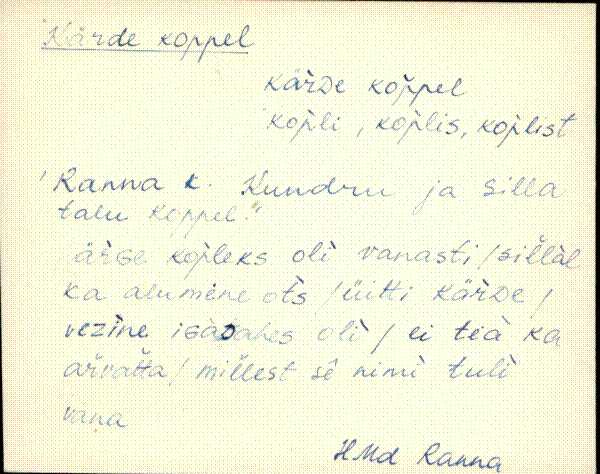 Kärde koppel
kärDe kop̀pel
kop̀li, kop̀lis, kop̀list
'Ranna k. Kundru ja Silla
talu koppel."
ärGe kop̀leks oli vanasti / sil̀lal
ka alumène ot̀s / üit̀ti kärDe /
vezìne oli / ei teà ka
arvat̀ta / mil̀lest sê nimì tulì
vana
HMd Ranna